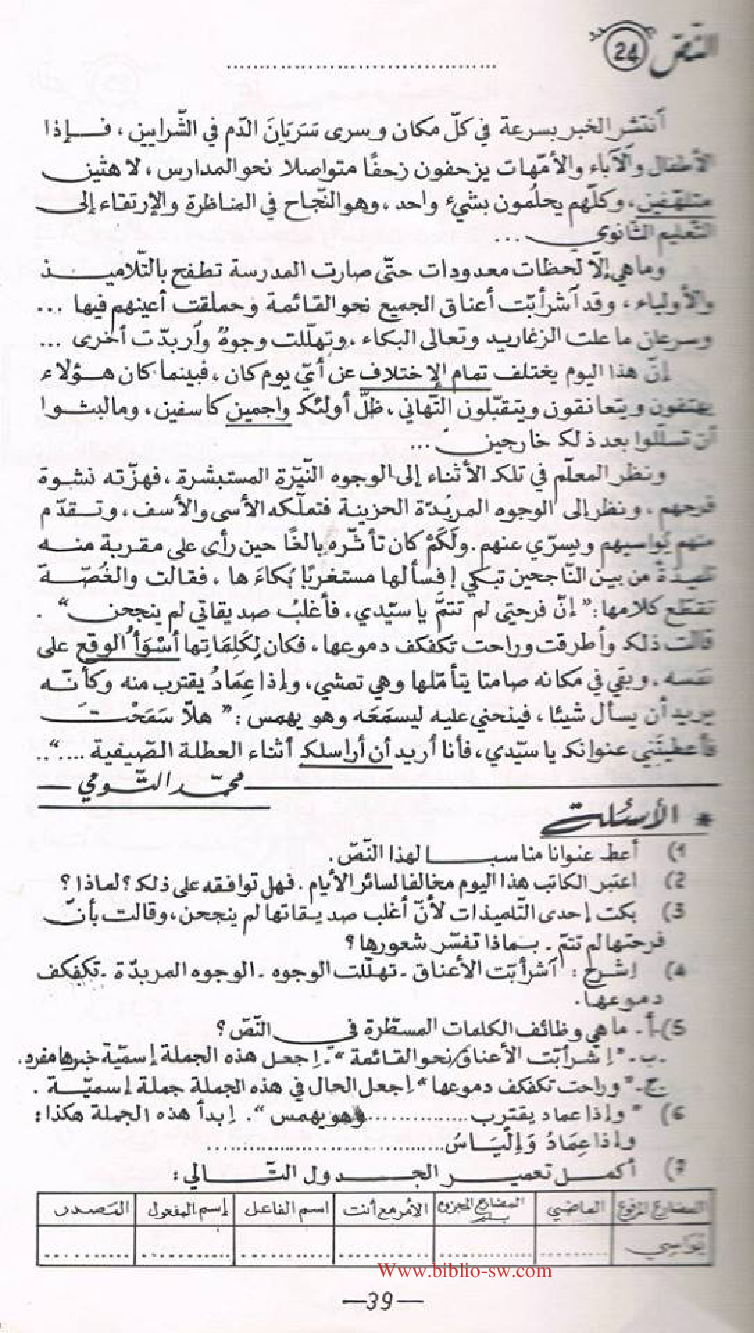 النّصّ 24
........................................
آنتشر الخبر بسرعة في كلّ مكان وسرى سَرَيَانَ الدّم في الشّرايين ، فــإذا
الأطفال والآباء والأمّهات يزحفون زحفًا متواصلا نحو المدارس ، لاهثين
متلهّفين ، وكلّهم يحلُمون بشيء واحد ، وهو النّجاح في المناظرة والإرتقاء إلى
التّعليم الثانوي ...
وماهي إلاّ لحظات معدودات حتّى صارت المدرسة تطفح بالتّلاميـــذ
والأولياء ، وقد آشرأبّت أعناق الجميع نحو القائمة وحملقت أعينهم فيها ...
وسرعان ما علت الزغاريد وتعالى البكاء ، وتهلّلت وجوهٌ وآربدّت أخرى ...
إنّ هذا اليوم يختلف تمام الإختلاف عن أيّ يوم كان ، فبينما كان هــؤلاء
يهتفون ويتعانقون ويتقبّلون التّهاني ، ظلّ أولئك واجمين كاسفين ، ومالبثـوا
أن تسلّلوا بعد ذلك خارجين ...
ونظر المعلّم في تلك الأثناء إلى الوجوه النيّرة المستبشرة ، فهزّته نشوة
فرحهم ، ونظر إلى الوجوه المربدّة الحزينة فتملّكه الأسى والأسف ، وتقـدّم
منهم يُواسيهم ويسرّي عنهم . ولَكَمْ كان تأثّره بالغًا حين رأى على مقربة منـه
تلميذة من بين النّاجحين تبكي إفسألها مستغربًا بُكاءَها ، فقالت والغُصّـة
تقطع كلامها : " إنّ فرحتي لم تتمّ ياسيّدي ، فأغلبُ صديقاتي لم ينجحن " .
قالت ذلك وأطرقت وراحت تكفكف دموعها ، فكان لِكَلِمَاتِها أسْوَأُ الوقع على
نفسه . وبقي في مكانه صامتا يتأمّلها وهي تمشي ، وإذا عِمَادُ يقترب منه وكأنّـه
يريد أن يسأل شيئا ، فينحني عليه ليسمَعَه وهو يهمس : " هلاّ سَمَحْتَ
فأعطيتَني عنوانك ياسيّدي ، فأنا أريد أن أراسلك أثناء العطلة الصّيفية ... " ..
محمّد التّومي
* الأسئلة
1) أعط عنوانا مناسبــا لهذا النّصّ .
2) اعتبر الكاتب هذا اليوم مخالفا لسائر الأيام . فهل توافقه على ذلك ؟ لماذا ؟
3) بكت إحدى التّلميذات لأنّ أغلب صديقاتها لم ينجحن ، وقالت بأنّ
فرحتها لم تتمّ . بماذا تفسّر شعورها ؟
4) إشرح : آشرأبّت الأعناق - تهلّلت الوجوه - الوجوه المربدّة - تكفكف
دموعها .
5) أ- ماهي وظائف الكلمات المسطّرة في النّصّ ؟
-ب- " إشرأبّت الأعناق نحو القائمة " . إجعل هذه الجملة إسميّة خبرها مفرد .
-ج- " وراحت تكفكف دموعها " إجعل الحال في هذه الجملة جملة إسميّـة .
6) " وإذا عماد يقترب ................ وهو يهمس " . إبدأ هذه الجملة هكذا :
وإذا عِمَادُ وَإلْيَاسُ ....................................
7) أكمل تعمير الجدول التّالي :
المضارع المرفوع | الماضي | المضارع المجزوم بـلم | الأمر مع أنت | اسم الفاعل | إسم المفعول | المصدر
يُواسي | ............ | ............ | ............ | ............ | ............ | ............
Www.biblio-sw.com
—39—